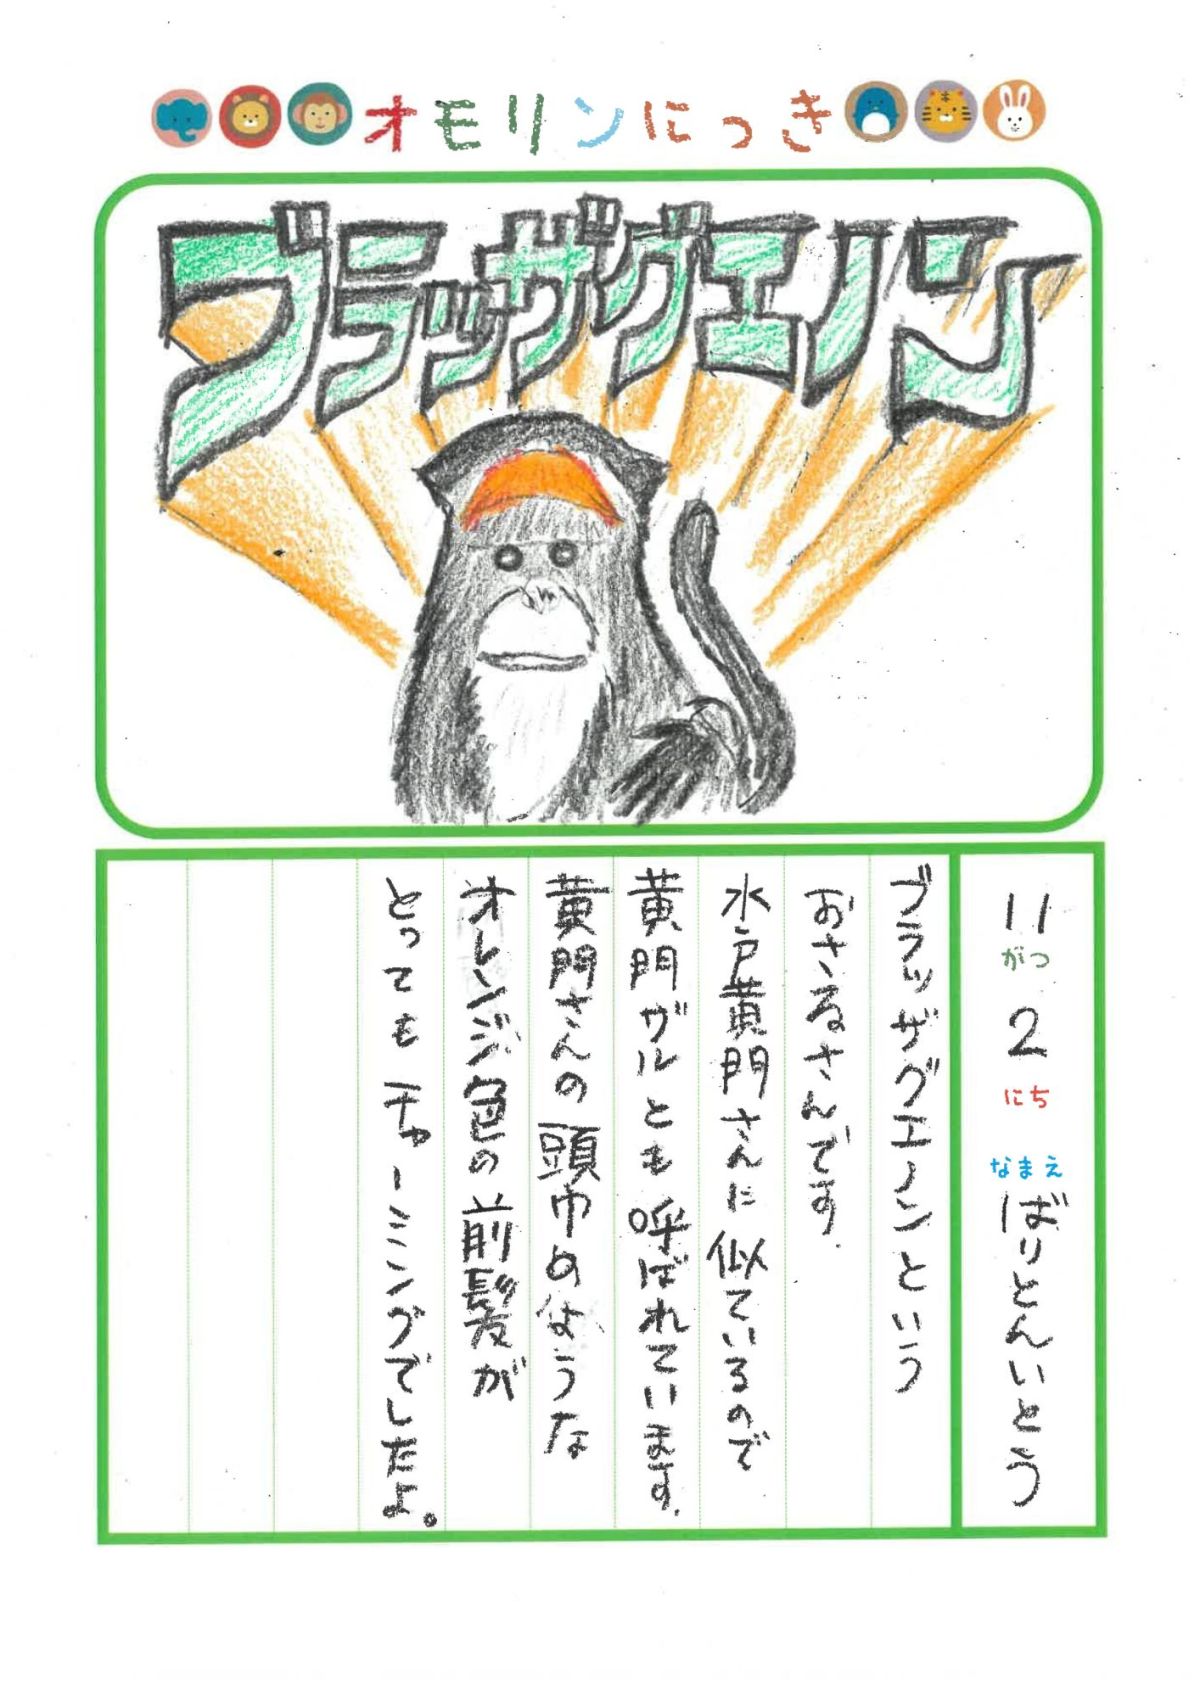 オモリンにっき
ブラッザグエノン
11がつ2にち なまえ ばりとんいとう
ブラッザグエノンという
おさるさんです.
水戸黄門さんに似ているので
黄門ザルとも呼ばれています.
黄門さんの頭巾のような
オレンジ色の前髪が
とってもチャーミングでしたよ。